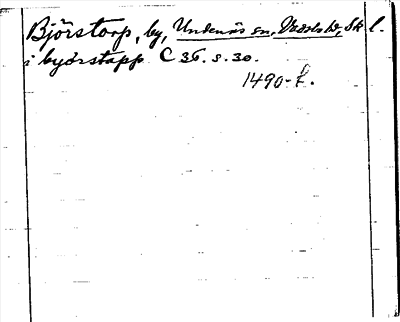 Björstorp, by, Undenäs sn, Vadsbo, Sk l.
i byörstapp C 36. s. 30.
1490-t.